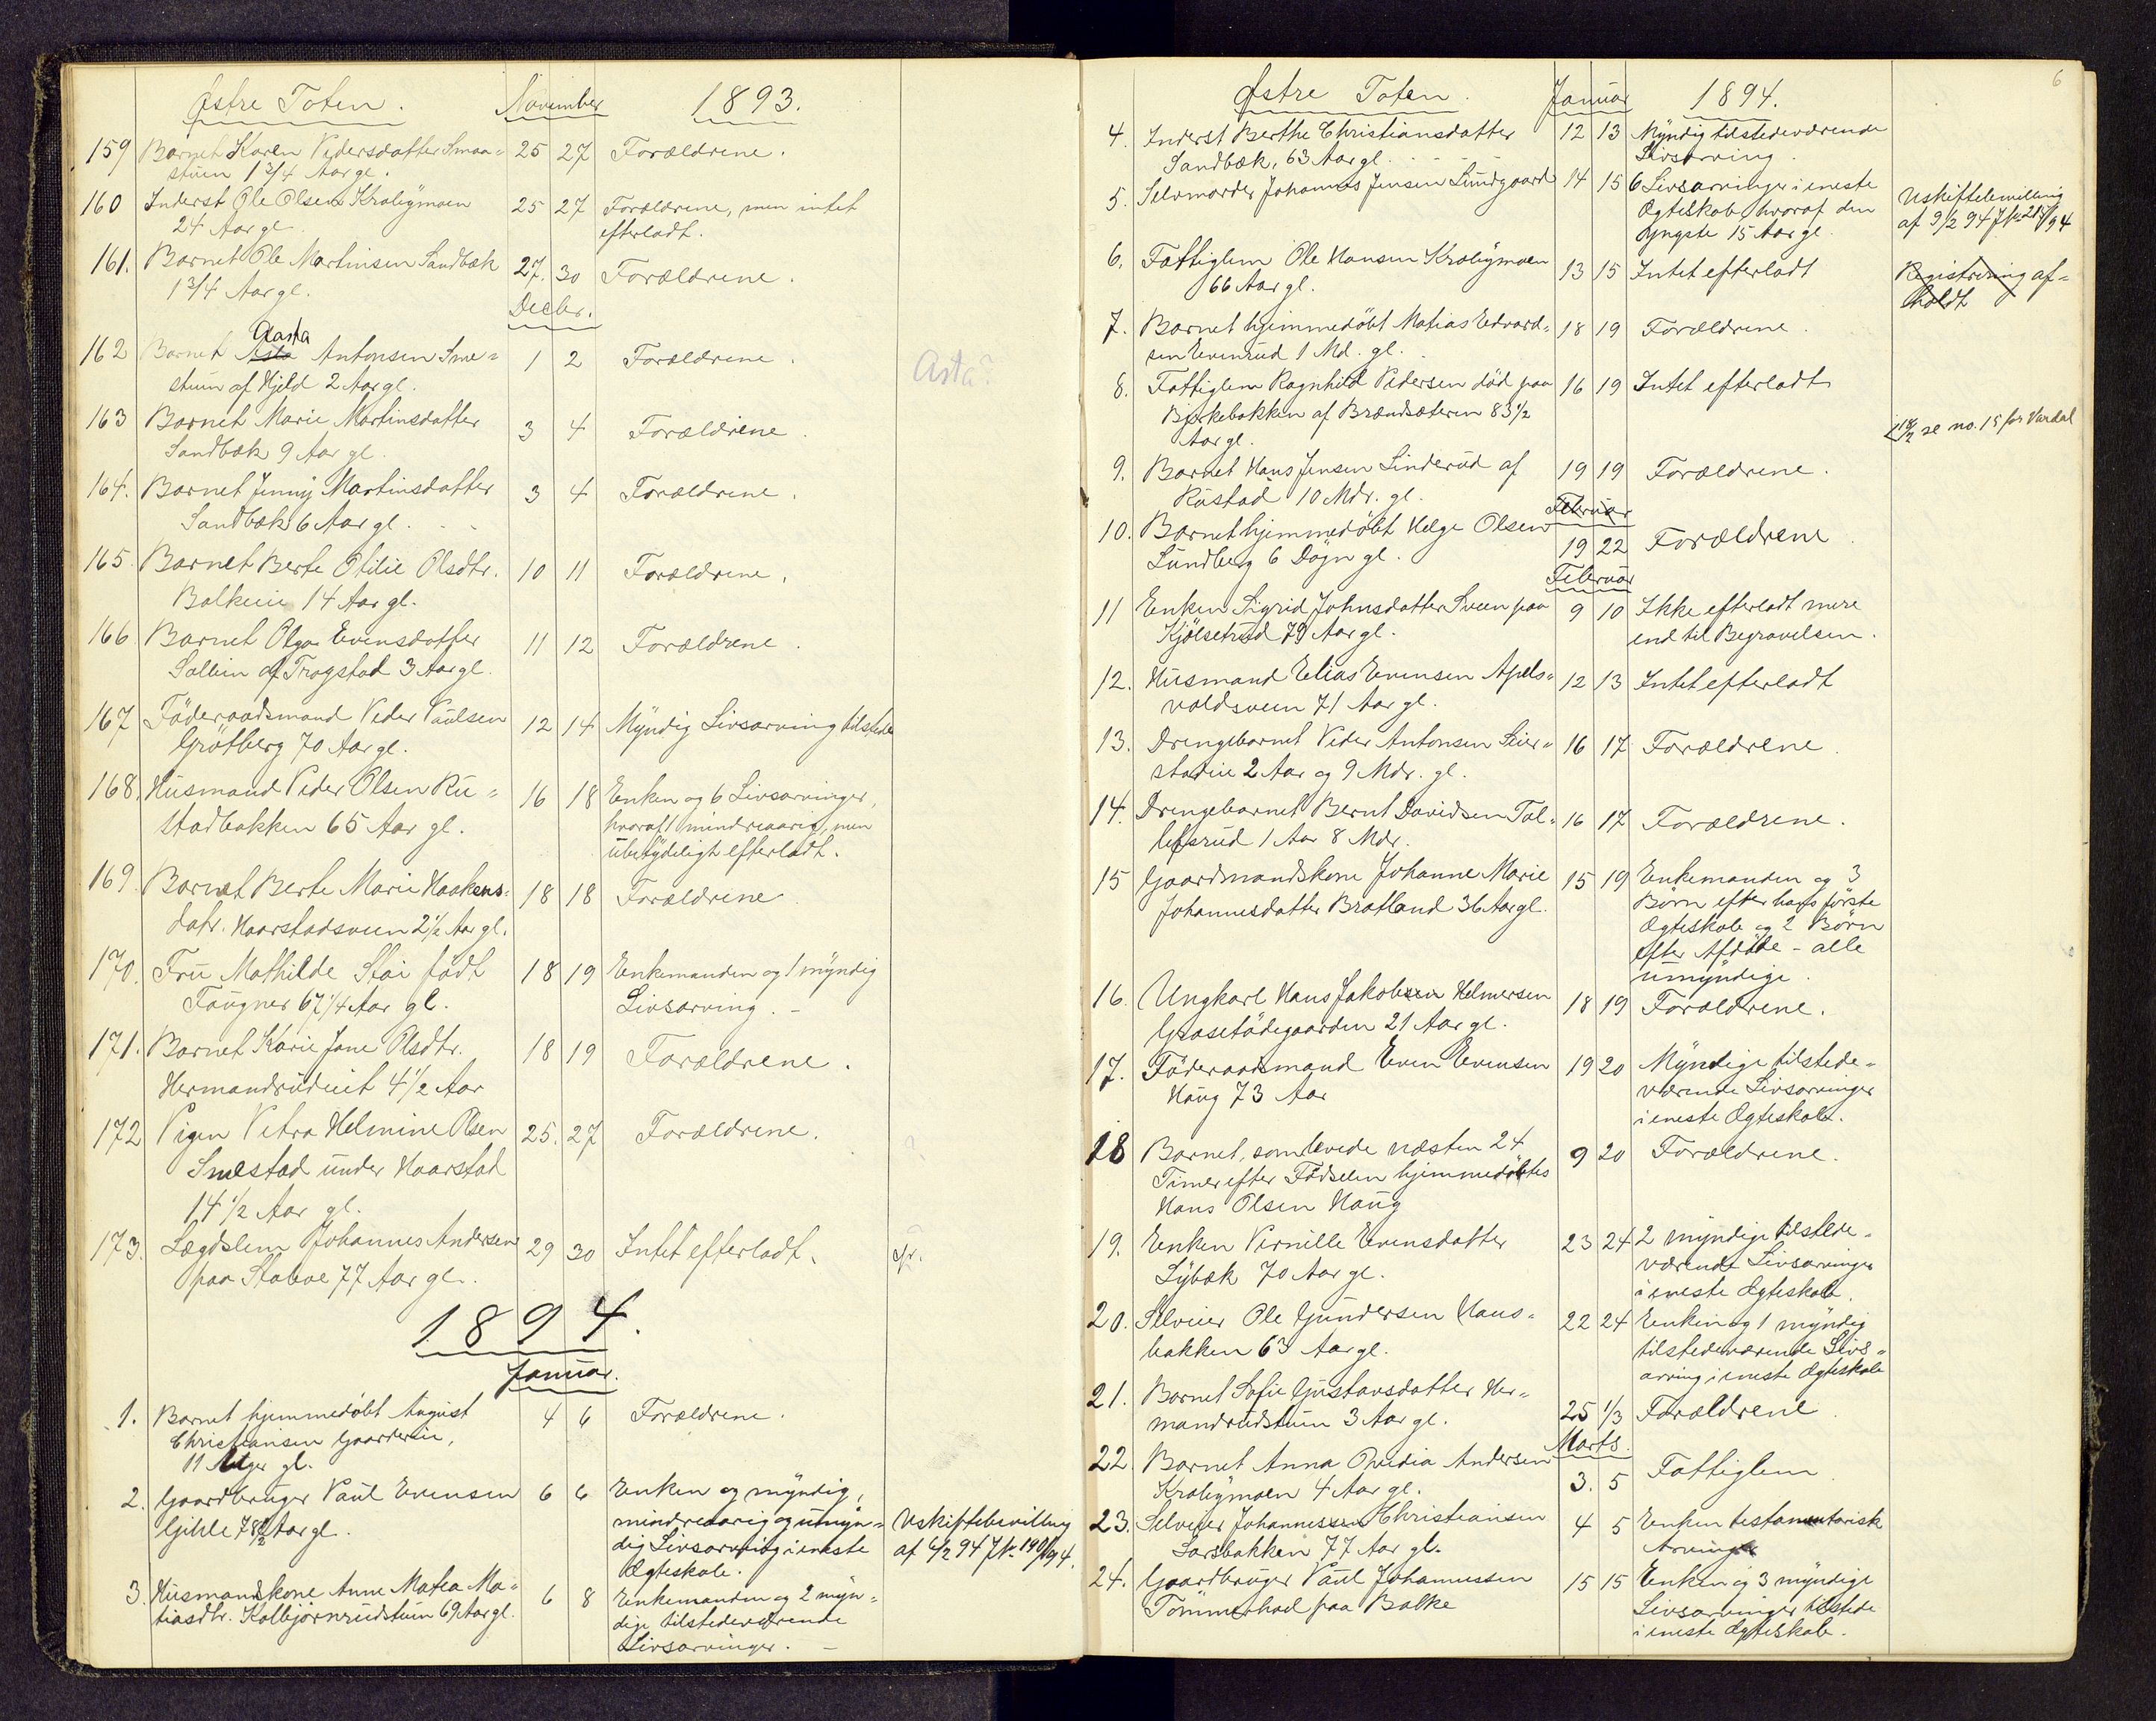 Østre Toten. November 1893.
159 Barnet Karen Pedersdatter Smaa= 25 27 Forældrene.
stuen 1 3/4 Aar gl.
160 Inderst Ole Olsen Krabymoen 25 27 Forældrene, men intet
24 Aar gl efterladt.
161. Barnet Ole Martinsen Sandbæk 27. 30 Forældrene.
1 3/4 Aar gl.
Decbr.
Aasta
162 Barnet Asta Antonsen Sme= 1 2 Forældrene. Asta?
stuen af Hjeld 2 Aar gl.
163 Barnet Marie Martinsdatter 3 4 Forældrene.
Sandbæk 9 Aar gl.
164. Barnet Jenny Martinsdatter 3 4 Forældrene.
Sandbæk 6 Aar gl.
165. Barnet Berte Otilie Olsdtr. 10 11 Forældrene.
Balkeie 14 Aar gl.
166 Barnet Olga Evensdatter 11 12 Forældrene.
Sollien af Trogstad 3 Aar gl.
167 Föderaadsmand Peder Paulsen 12 14 Myndig Livsarving tilstede
Grötberg 70 Aar gl.
168. Husmand Peder Olsen Ru= 16 18 Enken og 6 Livsarvinger,
stadbakken 65 Aar gl. hvoraf 1 mindreaarig, men
ubetydeligt efterladt.
169. Barnet Berte Marie Haakens= 18 18 Forældrene
datr. Haarstadsveen 2 1/2 Aar gl.
170. Fru Mathilde Stai født 18 19 Enkemanden og 1 myndig
Faugner 67 1/4 Aar gl. Livsarving. –
171. Barnet Karie Jane Olsdtr. 18 19 Forældrene.
Hermandrudeiet 4 1/2 Aar
172 Pigen Petra Helmine Olsen 25. 27 Forældrene. ?
Smestad under Haarstad
14 1/2 Aar gl.
173. Lægdslem Johannes Andersen 29 30 Intet efterladt.
paa Stabve 77 Aar gl.
1894.
Januar.
1. Barnet hjemmedøbt August 4 6 Forældrene.
Christiansen Gaardereie,
11 Uger gl.
2. Gaardbruger Paul Evensen 6 6 Enken og myndig,
Gihle 78 1/2 Aar gl. mindreaarig og umyn= Uskiftebevilling
dig Livsarving i eneste af 6/2 94 J.No. 190/94.
Ægteskab.
3. Husmandskone Anne Matea Ma= 6 8 Enkemanden og 2 myn=
tiasdtr. Kolbjørnrudstuen 69 Aar gl. dige tilstedeværende
Livsarvinger. –
6
Østre Toten. Januar 1894.
4. Inderst Berthe Christiansdatter 12 13 Myndig tilstedeværende
Sandbæk, 63 Aar gl. Livsarving.
5. Selvmorder Johannes Jensen Lundgaard 14 15 6 Livsarvinger i eneste Uskiftebevilling
Ægteskab, hvoraf den af 9/2 94
yngste 15 Aar gl.
6. Fattiglem Ole Hansen Krabymoen 13 15 Intet efterladt Registrering af=
66 Aar gl. holdt
7. Barnet hjemmedöbt Matias Edvard= 18 19 Forældrene.
sen Evenrud 1 Md. gl.
8. Fattiglem Ragnhild Pedersen död paa 16 19 Intet efterladt
Bjerkebakken af Brandsæteren 83 1/2
Aar gl. se no. 15 for Vardal
9. Barnet Hans Jensen Linderud af 19 19 Forældrene.
Rustad 10 Mdr. gl.
Februar
10. Barnet hjemmedöbt Helge Olsen 19 22 Forældrene
Lundberg 6 Døgn gl.
Februar
11 Enken Sigrid Johnsdatter Sveen paa 9 10 Ikke efterladt mere
Kjölsetrud 79 Aar gl. end til Begravelsen.
12. Husmand Elias Evensen Apels= 12 13 Intet efterladt
voldsveen 71 Aar gl.
13. Drengebarnet Peder Antonsen Seier= 16 17 Forældrene.
stadeie 2 Aar og 9 Mdr. gl.
14. Drengebarnet Bernt Davidsen Tol= 16 17 Forældrene.
lefsrud 1 Aar 8 Mdr.
15 Gaardmandskone Johanne Marie 15 19 Enkemanden og 3
Johannesdatter Bratland 36 Aar gl. Börn efter hans förste
Ægteskab og 2 Börn
efter Afdöde – alle
umyndige.
16. Ungkarl Hans Jakobsen Helmersen 18 19 Forældrene.
Graset­ödegaarden 21 Aar gl.
17. Föderaadsmand Even Evensen 19 20 Myndige tilstede=
Haug 73 Aar værende Livsarvinger
i eneste Ægteskab.
18 Barnet, som levede næsten 24 9 20 Forældrene.
Timer efter Födselen hjemmedöbtes
Hans Olsen Haug
19. Enken Pernille Evensdatter 23 24 2 myndige tilstede=
Lybæk 70 Aar gl. værende Livsarvinger
i eneste Ægteskab.
20. Selveier Ole Gundersen Haus= 22 24 Enken og 1 myndig
bakken 63 Aar gl. tilstedeværende Livs=
arving i eneste Ægteskab
21. Barnet Sofie Gustavsdatter Her= 25 1/3 Forældrene.
mandrudstuen 3 Aar gl.
Marts.
22. Barnet Anna Ovidia Andersen 3. 5 Fattiglem
Krabymoen 4 Aar gl.
23. Selveier Johannessen Christiansen 4 5 Enken testamentarisk
Larsbakken 77 Aar gl. Arving
24. Gaardbruger Paul Johannessen 15 15 Enken og 3 myndige
Tömmerhol paa Balke Livsarvinger tilstede
i eneste Ægteskab.